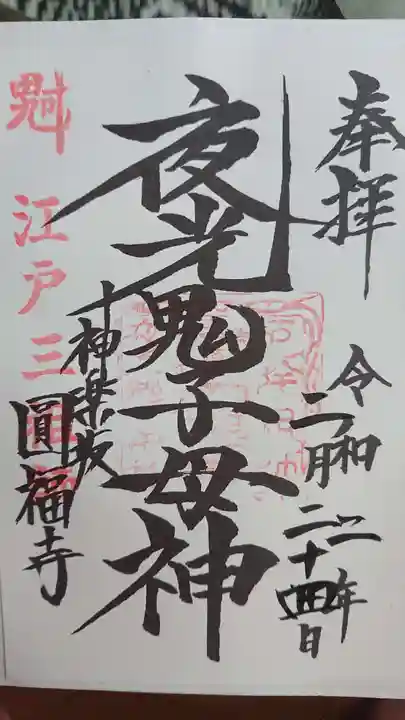 奉拝
令和二年
二月二十四日
夜光鬼子母神
神楽坂
圓福寺
江戸三